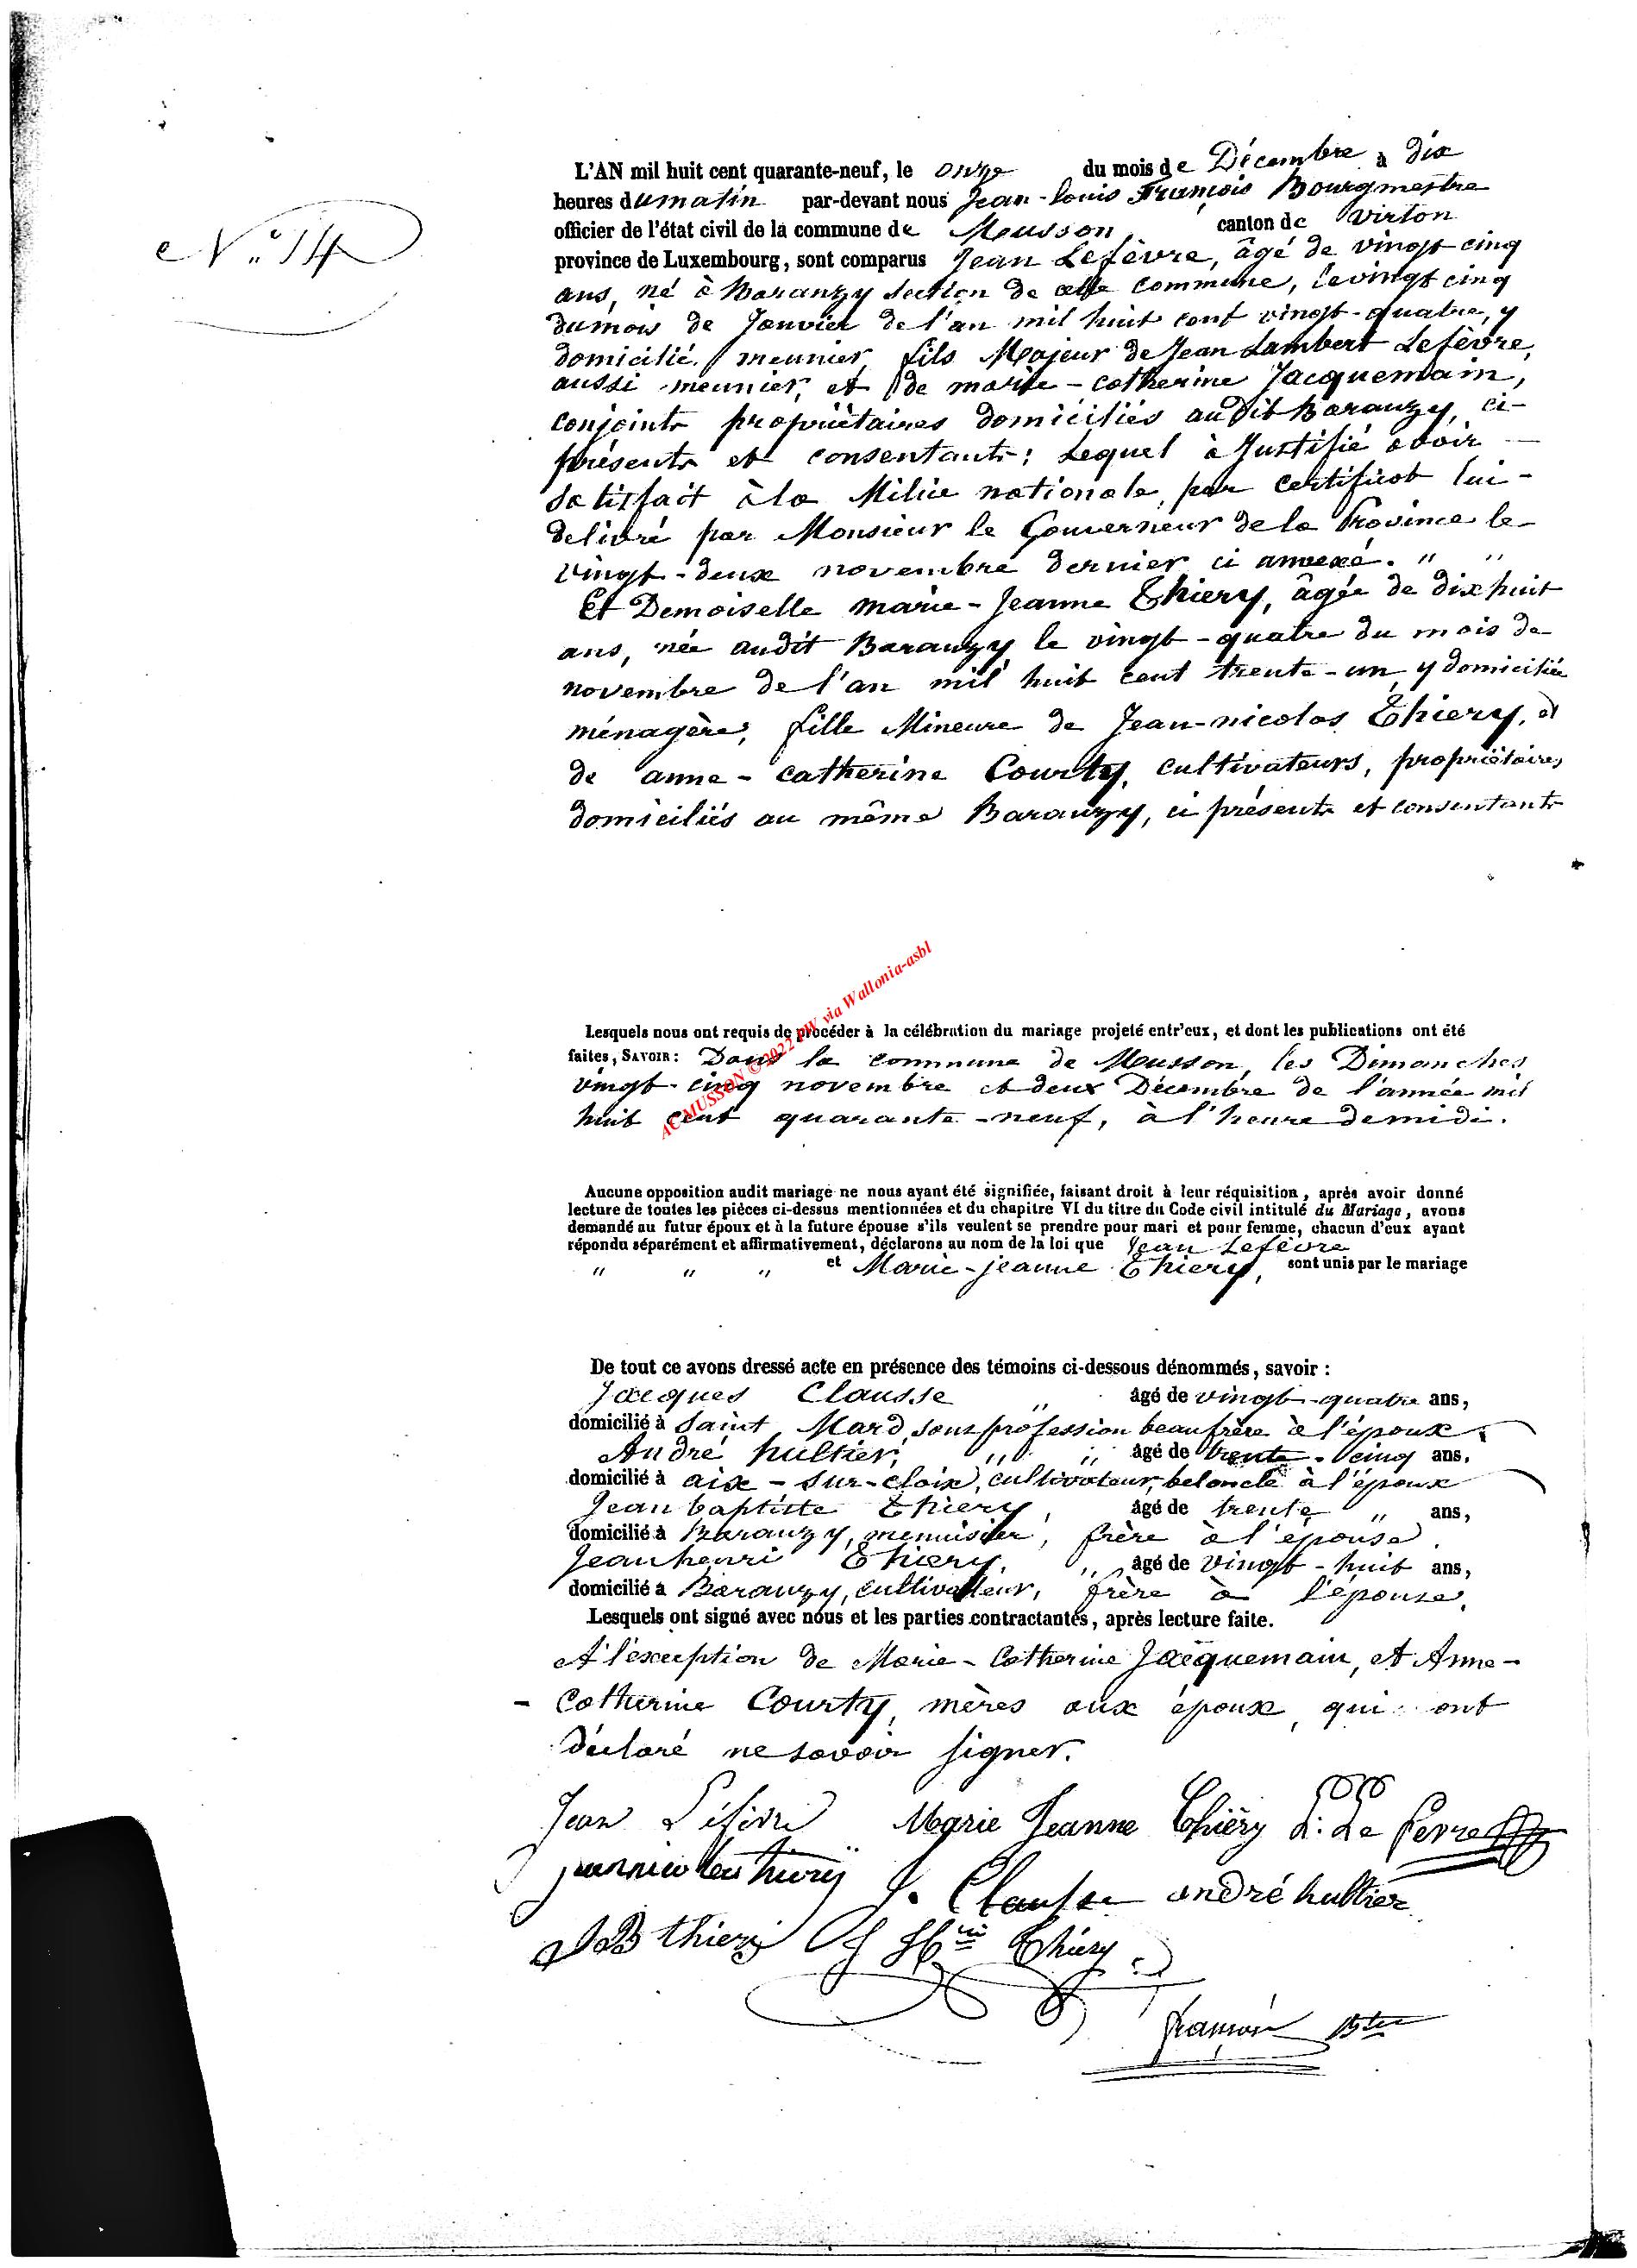 N° 14
L'AN mil huit cent quarante-neuf, le onze du mois de Décembre à dix
heures du matin par-devant nous Jean-louis François Bourgmestre
officier de l'état civil de la commune de Musson, canton de Virton
province de Luxembourg, sont comparus Jean Lefèvre, âgé de vingt cinq
ans, né à Baranzy section de cette commune, le vingt cinq
du mois de Janvier de l'an mil huit cent vingt-quatre, y
domicilié, meunier, fils Majeur de Jean Lambert Lefèvre,
aussi meunier, et de marie-catherine Jacquemain,
conjoints propriétaires domiciliés audit Baranzy, ci-
présents et consentants; Lequel à Justifié avoir
satisfait à la Milice nationale, par certificat lui-
delivré par Monsieur le Gouverneur de la Province le
vingt-deux novembre dernier ci annexé. " "
Et Demoiselle marie-Jeanne Thiery, âgée de dix huit
ans, née audit Baranzy le vingt-quatre du mois de
novembre de l'an mil huit cent trente-un, y domiciliée
ménagère, fille Mineure de Jean-nicolas Thiery, et
de anne-catherine Courty, cultivateurs, propriétaires
domiciliés au même Baranzy, ci présents et consentants
Lesquels nous ont requis de procéder à la célébration du mariage projeté entr'eux, et dont les publications ont été
faites, SAVOIR: Dans la commune de Musson, les Dimanches
vingt-cinq novembre et deux Décembre de l'année mil
huit cent quarante-neuf, à l'heure de midi.
AC MUSSON © 2022 PW via Wallonia-asbl
Aucune opposition audit mariage ne nous ayant été signifiée, faisant droit à leur réquisition, après avoir donné
lecture de toutes les pièces ci-dessus mentionnées et du chapitre VI du titre du Code civil intitulé du Mariage, avons
demandé au futur époux et à la future épouse s'ils veulent se prendre pour mari et pour femme, chacun d'eux ayant
répondu séparément et affirmativement, déclarons au nom de la loi que Jean Lefèvre
" " " et Marie-jeanne Thiery, sont unis par le mariage
De tout ce avons dressé acte en présence des témoins ci-dessous dénommés, savoir :
Jacques Clausse " âgé de vingt-quatre ans,
domicilié à Saint Mard, sans profession beaufrère à l'époux.
André hultier, " " âgé de trente-cinq ans.
domicilié à aix-sur-cloix, cultivateur, beloncle à l'époux
Jean baptiste Thiery, âgé de trente " ans,
domicilié à Baranzy, menuisier, frère à l'épouse.
Jean henri Thiery, " âgé de vingt-huit ans,
domicilié à Baranzy, cultivateur, frère à l'épouse.
Lesquels ont signé avec nous et les parties contractantes, après lecture faite.
A l'exception de Marie-Catherine Jacquemain, et Anne-
-Catherine Courty, mères aux époux, qui ont
déclaré ne savoir signer.
Jean Léfèvre Marie Jeanne Thiéry L: Le fevre
jean nicolas thiery J. Clausse andré hultier
J B thiery J Hri Thiéry
françois Btre